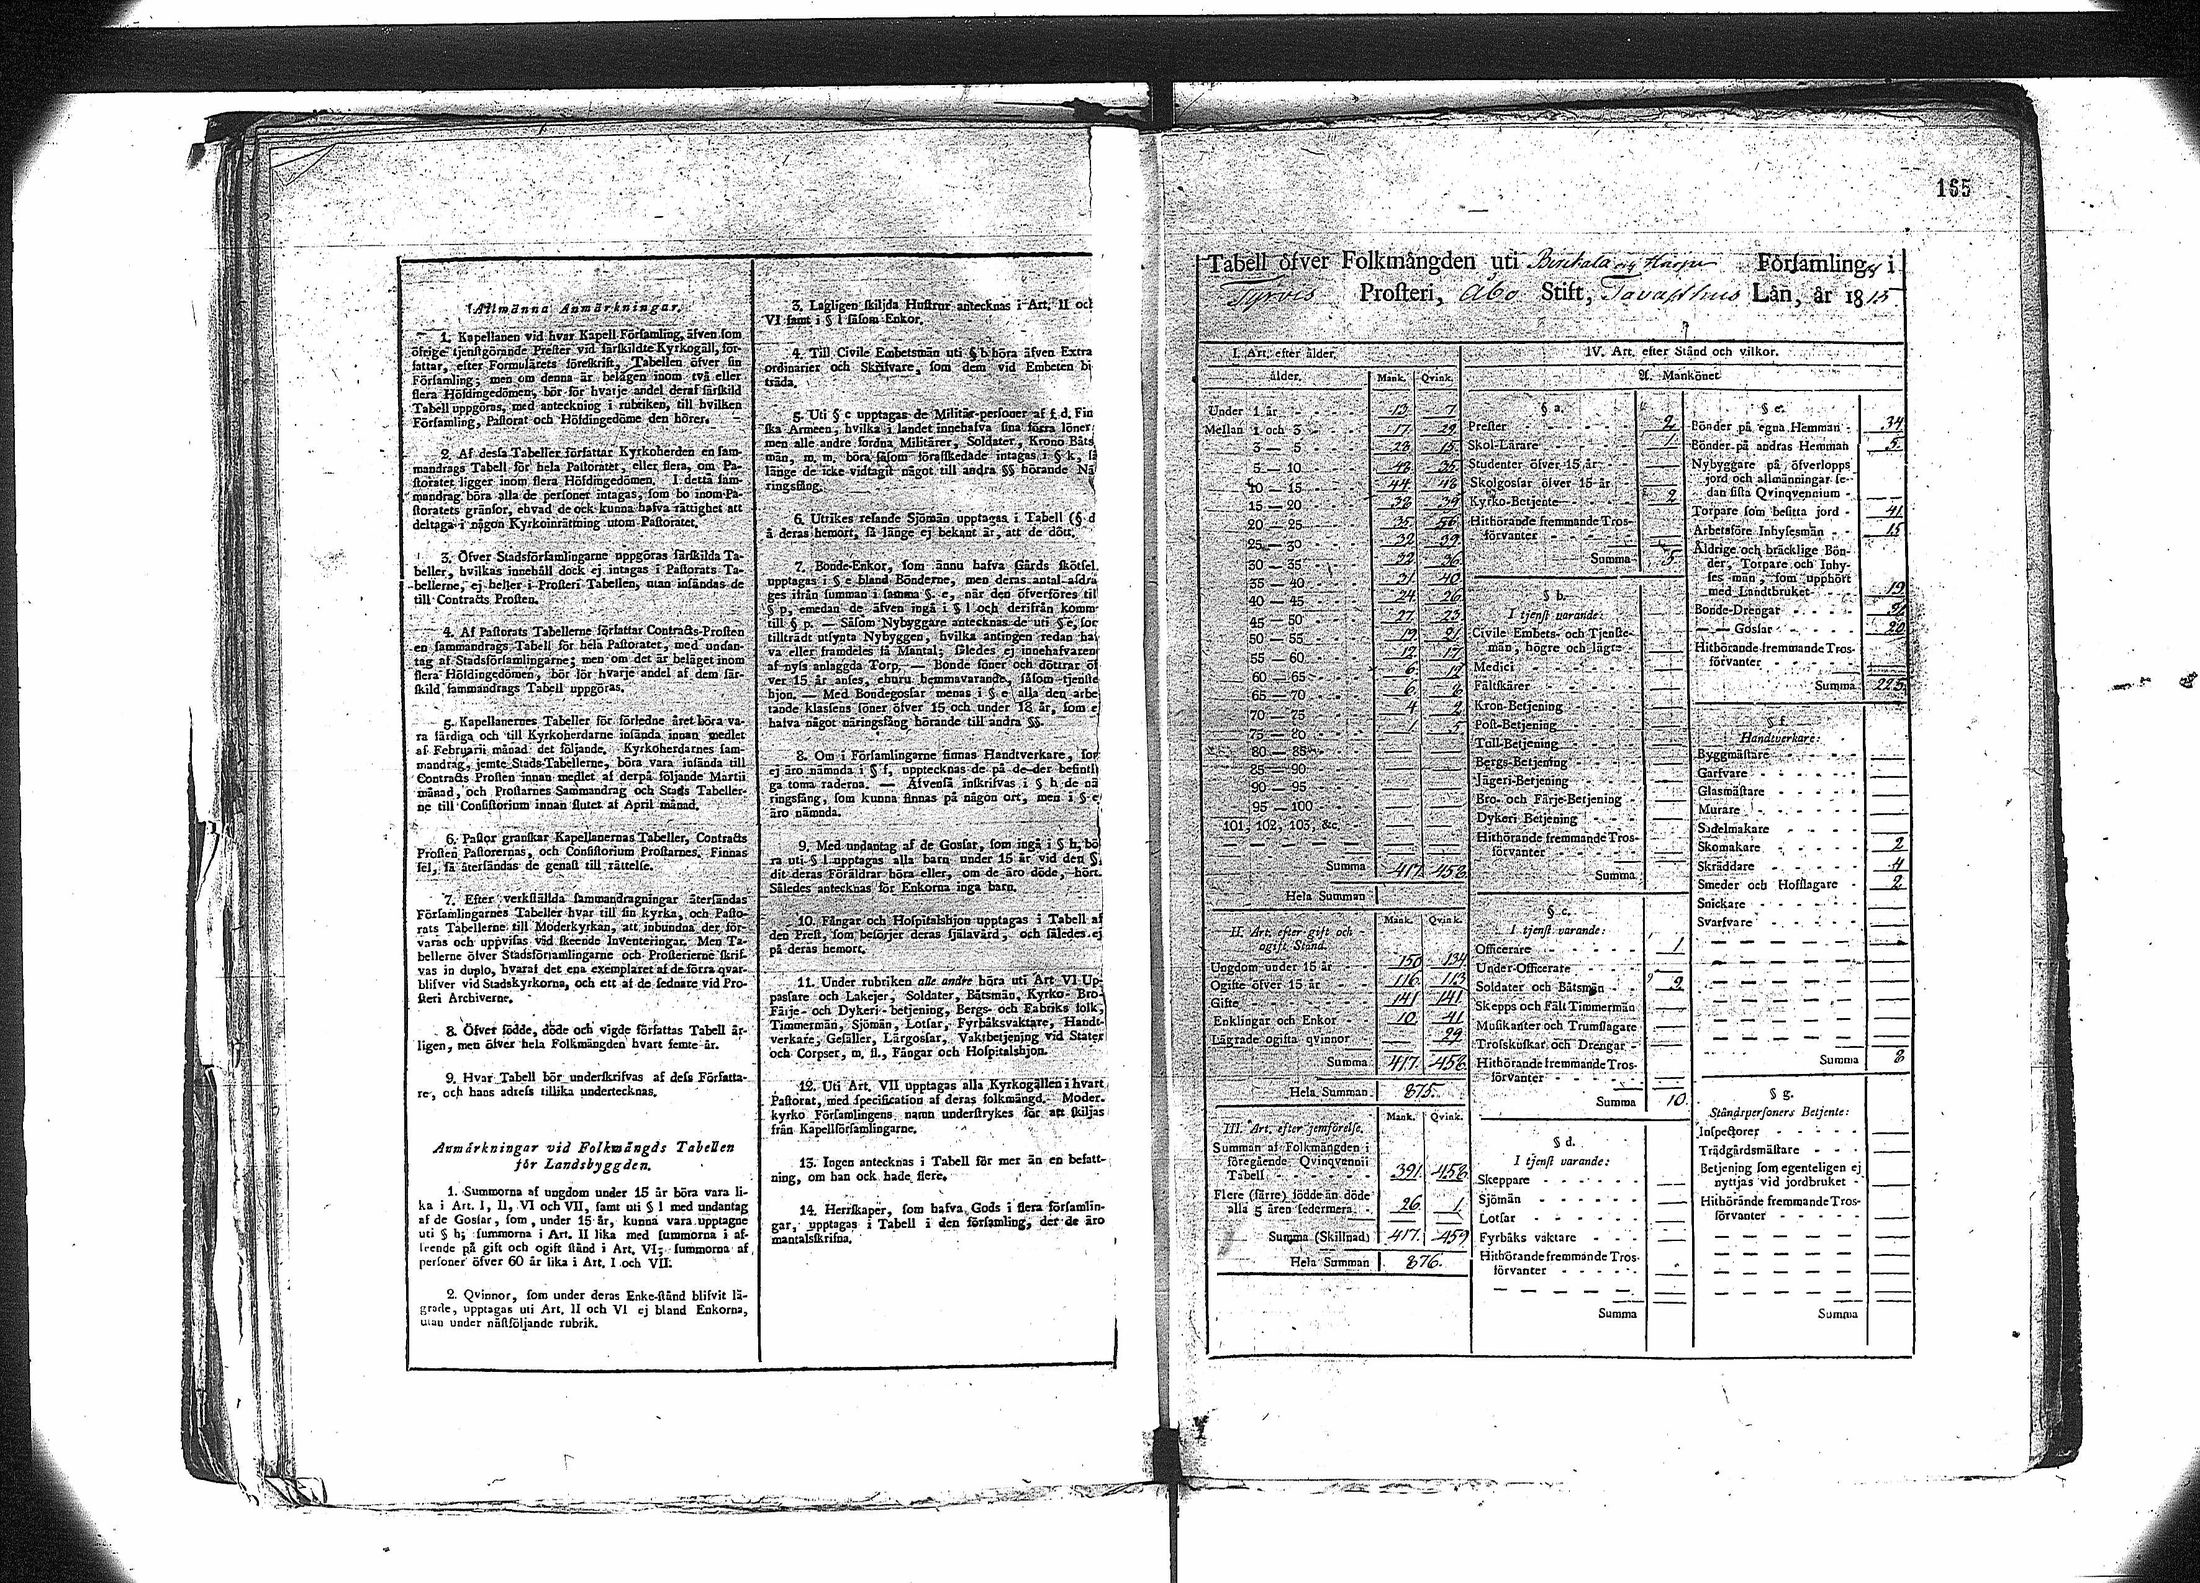 Allmänna Anmärkningar.
1. Kapellanen vid hvar Kapell Församling, äfven som
öfrige tjenstgörande Prester vid särskildte Kyrkogäll, för-
fattar, efter Formulärets föreskrift, Tabellen öfver sin
Församling; men om denna är belägen inom två eller
flera Höfdingedömen, bör för hvarje andel deraf särskild
Tabell uppgöras, med anteckning i rubriken, till hvilken
Församling, Pastorat och Höfdingedöme den hörer.
2. Af dessa Tabeller författar Kyrkoherden en sam-
mandrags Tabell för hela Pastoratet, eller flera, om Pa-
storatet ligger inom flera Höfdingedömen. I detta sam-
mandrag böra alla de personer intagas, som bo inom Pa-
storatets gränsor, ehvad de ock kunna hafva rättighet att
deltaga i någon Kyrkoinrättning utom Pastoratet.
3. Öfver Stadsförsamlingarne uppgöras särskilda Ta-
beller, hvilkas innehåll dock ej intagas i Pastorats Ta-
bellerne, ej heller i Prosteri Tabellen, utan insändas de
till Contracts Prosten.
4. Af Pastorats Tabellerne författar Contracts-Prosten
en sammandrags Tabell för hela Pastoratet, med undan-
tag af Stadsförsamlingarne; men om det är beläget inom
flera Höfdingedömen, bör för hvarje andel af dem sär-
skild sammandrags Tabell uppgöras.
5. Kapellanernes Tabeller för förledne året böra va-
ra färdiga och till Kyrkoherdarne insända innan medlet
af Februarii månad det följande. Kyrkoherdarnes sam-
mandrag, jemte Stads-Tabellerne, böra vara insända till
Contracts Prosten innan medlet af derpå följande Martii
månad, och Prostarnes Sammandrag och Stads Tabeller-
ne till Consistorium innan slutet af April månad.
6. Pastor granskar Kapellanernas Tabeller, Contracts
Prosten Pastorernas, och Consistorium Prostarnes. Finnas
fel, så återsändas de genast till rättelse.
7. Efter verkställda sammandragningar återsändas
Församlingarnes Tabeller hvar till sin kyrka, och Pasto-
rats Tabellerne till Moderkyrkan, att inbundna der för-
varas och uppvisas vid skeende Inventeringar. Men Ta-
bellerne öfver Stadsförsamlingarne och Prosterierne skrif-
vas in duplo, hvaraf det ena exemplaret af de förra qvar-
blifver vid Stadskyrkorna, och ett af de sednare vid Pro-
steri Archiverne.
8. Öfver födde, döde och vigde författas Tabell år-
ligen, men öfver hela Folkmängden hvart femte år.
9. Hvar Tabell bör underskrifvas af dess Författa-
re, och hans adress tillika undertecknas.
Anmärkningar vid Folkmängds Tabellen
för Landsbyggden.
1. Summorna af ungdom under 15 år böra vara li-
ka i Art. I, II, VI och VII, samt uti § l med undantag
af de Gossar, som, under 15 år, kunna vara upptagne
uti § h; summorna i Art. II lika med summorna i af-
seende på gift och ogift stånd i Art. VI; summorna af
personer öfver 60 år lika i Art. I och VII.
2. Qvinnor, som under deras Enke-stånd blifvit lä-
grade, upptagas uti Art. II och VI ej bland Enkorna,
utan under nästföljande rubrik.
3. Lagligen skiljda Hustrur antecknas i Art. II och
VI samt i § l såsom Enkor.
4. Till Civile Embetsmän uti § b höra äfven Extra
ordinarier och Skrifvare, som dem vid Embeten bi
träda.
5. Uti § c upptagas de Militär-personer af f. d. Fin
ska Armeen, hvilka i landet innehafva sina förra löner;
men alle andre fordna Militärer, Soldater, Krono Båts
män, m. m. böra såsom försskedade intagas i § k, så
länge de icke vidtagit något till andra §§ hörande Nä
ringsfång.
6. Utrikes resande Sjömän upptagas i Tabell (§ d
å deras hemort, så länge ej bekant är, att de dött.
7. Bonde-Enkor, som ännu hafva Gårds skötsel
upptagas i § e bland Bönderne, men deras antal afdra
ges ifrån summan i samma § e, när den öfverföres til
§ p, emedan de äfven ingå i § l och derifrån komm
till § p. — Såsom Nybyggare antecknas de uti § e, som
tillträdt utsynta Nybyggen, hvilka antingen redan haf
va eller framdeles få Mantal; således ej innehafvaren
af nyss anlaggda Torp. — Bonde söner och döttrar öf
ver 15 år anses, ehuru hemmavarande, såsom tjenste
hjon. — Med Bondegossar menas i § e alla den arbe
tande klassens söner öfver 15 och under 18 år, som e
hafva något näringsfång hörande till andra §§.
8. Om i Församlingarne finnas Handtverkare, som
ej äro nämnda i § f, upptecknas de på de der befintl
ga toma raderna. — Äfvenså inskrifvas i § h de nä
ringsfång, som kunna finnas på någon ort, men i § e
äro nämnda.
9. Med undantag af de Gossar, som ingå i § h, bö
ra uti § l upptagas alla barn under 15 år vid den §,
dit deras Föräldrar höra eller, om de äro döde, hört.
Således antecknas för Enkorna inga barn.
10. Fångar och Hospitalshjon upptagas i Tabell af
den Prest, som besörjer deras själavård, och således ej
på deras hemort.
11. Under rubriken alle andre höra uti Art VI Up
passare och Lakejer, Soldater, Båtsmän, Kyrko- Bro-
Färje- och Dykeri-betjening, Bergs- och Fabriks folk,
Timmermän, Sjömän, Lotsar, Fyrbåksvaktare, Handt-
verkare, Gesäller, Lärgossar, Vaktbetjening vid Stater
och Corpser, m. fl., Fångar och Hospitalshjon.
12. Uti Art. VII upptagas alla Kyrkogällen i hvart
Pastorat, med specification af deras folkmängd. Moder-
kyrko Församlingens namn understrykes för att skiljas
från Kapellförsamlingarne.
13. Ingen antecknas i Tabell för mer än en befatt-
ning, om han ock hade flere.
14. Herrskaper, som hafva Gods i flera församlin-
gar, upptagas i Tabell i den församling, der de äro
mantalsskrifna.
165
Tabell öfver Folkmängden uti Birckala och Harju Församling i
Tyrvis Prosteri, Åbo Stift, Tavasthus Län, år 1815.
I. Art. efter ålder.
ålder. Mank. Qvink.
Under 1 år 13 7
Mellan 1 och 3 17 29
3 — 5 23 15
5 — 10 48 35
10 — 15 44 48
15 — 20 38 39
20 — 25 35 56
25 — 30 32 39
30 — 35 22 36
35 — 40 31 40
40 — 45 24 26
45 — 50 27 23
50 — 55 19 21
55 — 60 12 17
60 — 65 6 12
65 — 70 6 8
70 — 75 4 2
75 — 80 1 5
80 — 85
85 — 90
90 — 95
95 — 100
101, 102, 103, &c.
Summa 417 458
Hela Summan
II. Art. efter gift och Mank. Qvink.
ogift Stånd.
Ungdom under 15 år 150 134
Ogifte öfver 15 år 116 113
Gifte 141 141
Enklingar och Enkor 10 41
Lägrade ogifta qvinnor 29
Summa 417 458
Hela Summan 875.
III. Art. efter jemförelse. Mank. Qvink.
Summan af Folkmängden i
föregående Qvinqvennii
Tabell 391 458
Flere (färre) födde än döde
alla 5 åren sedermera 26 1
Summa (Skillnad) 417 459
Hela Summan 876.
IV. Art. efter Stånd och vilkor.
A. Mankönet
§ a.
Prester 2
Skol-Lärare 1
Studenter öfver 15 år
Skolgossar öfver 15 år
Kyrko-Betjente 2
Hithörande fremmande Tros-
förvanter
Summa 5
§ b.
I tjenst varande:
Civile Embets- och Tjenste-
män, högre och lägre
Medici
Fältskärer
Kron-Betjening
Post-Betjening
Tull-Betjening
Bergs-Betjening
Jägeri-Betjening
Bro- och Färje-Betjening
Dykeri Betjening
Hithörande fremmande Tros-
förvanter
Summa
§ c.
I tjenst varande:
Officerare 1
Under-Officerare
Soldater och Båtsmän 9
Skepps och Fält Timmermän
Musikanter och Trumslagare
Trosskuskar och Drengar
Hithörande fremmande Tros-
förvanter
Summa 10
§ d.
I tjenst varande:
Skeppare
Sjömän
Lotsar
Fyrbåks vaktare
Hithörande fremmande Tros-
förvanter
Summa
§ e.
Bönder på egna Hemman 34
Bönder på andras Hemman 5
Nybyggare på öfverlopps
jord och allmänningar se-
dan sista Qvinqvennium
Torpare som besitta jord 41
Arbetsföre Inhysesmän 15
Åldrige och bräcklige Bön-
der, Torpare och Inhy-
ses män, som upphört
med Landtbruket 19
Bonde-Drengar
— — Gossar 20
Hithörande fremmande Tros-
förvanter
Summa 225
§ f.
Handtverkare:
Byggmästare
Garfvare
Glasmästare
Murare
Sadelmakare
Skomakare 2
Skräddare 4
Smeder och Hofslagare 2
Snickare
Svarfvare
Summa 8
§ g.
Ståndspersoners Betjente:
Inspectorer
Trädgårdsmästare
Betjening som egenteligen ej
nyttjas vid jordbruket
Hithörände fremmande Tros-
förvanter
Summa